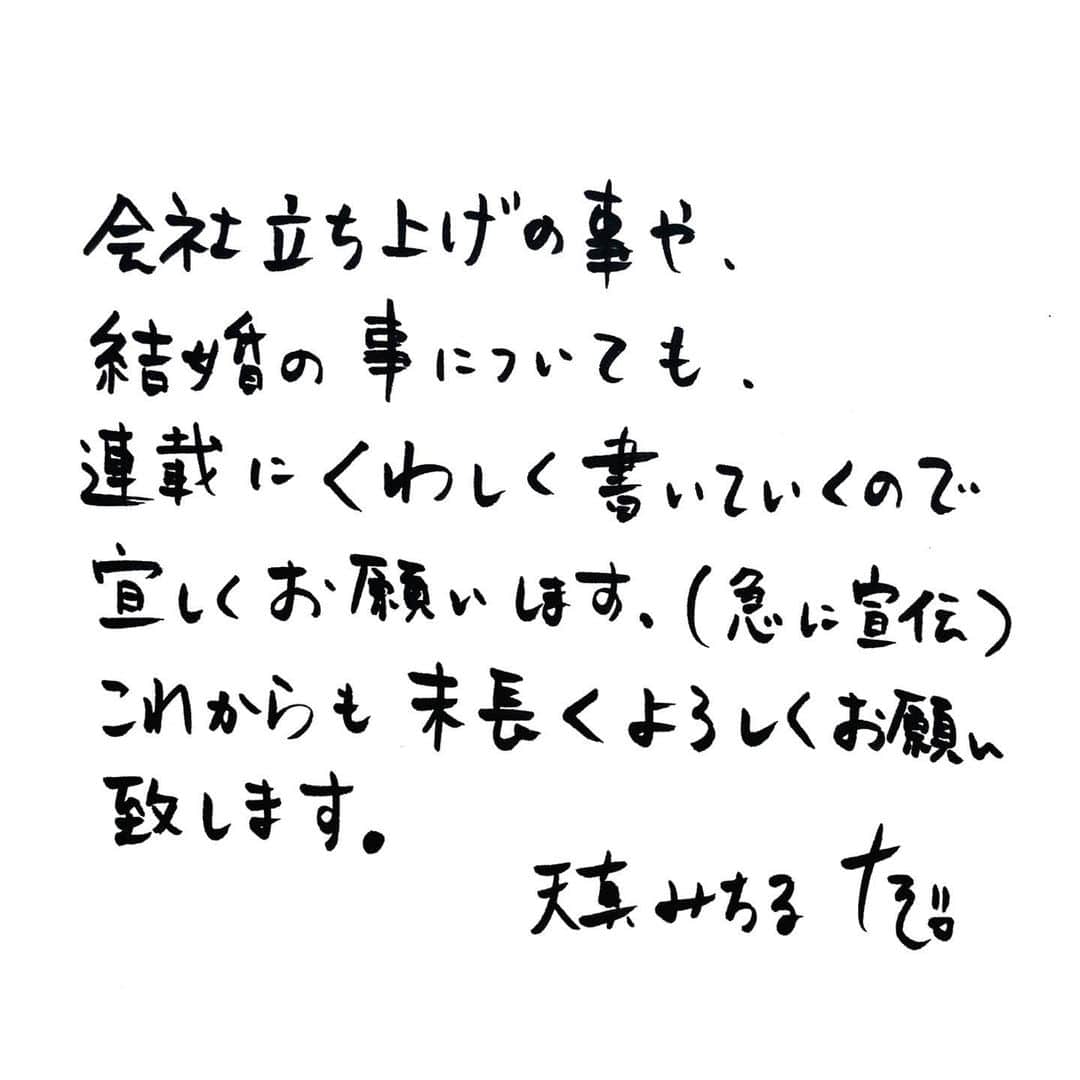 会社立ち上げの事や、
結婚の事についても、
連載にくわしく書いていくので
宜しくお願いします。(急に宣伝)
これからも末長くよろしくお願い
致します。
天真みちる